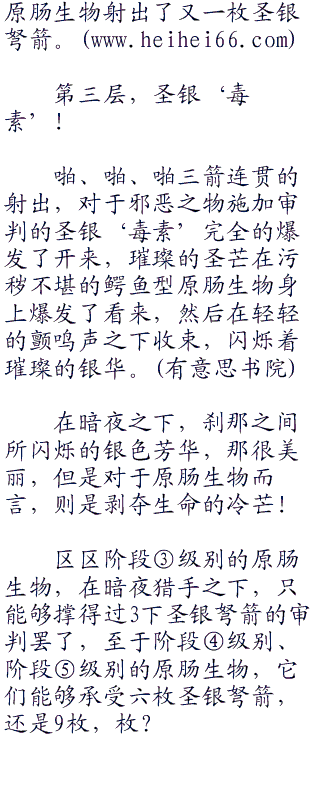 原肠生物射出了又一枚圣银
弩箭。(www.heihei66.com)
第三层，圣银‘毒
素’！
啪、啪、啪三箭连贯的
射出，对于邪恶之物施加审
判的圣银‘毒素’完全的爆
发了开来，璀璨的圣芒在污
秽不堪的鳄鱼型原肠生物身
上爆发了看来，然后在轻轻
的颤鸣声之下收束，闪烁着
璀璨的银华。(有意思书院)
在暗夜之下，刹那之间
所闪烁的银色芳华，那很美
丽，但是对于原肠生物而
言，则是剥夺生命的冷芒！
区区阶段③级别的原肠
生物，在暗夜猎手之下，只
能够撑得过3下圣银弩箭的审
判罢了，至于阶段④级别、
阶段⑤级别的原肠生物，它
们能够承受六枚圣银弩箭，
还是9枚，枚？